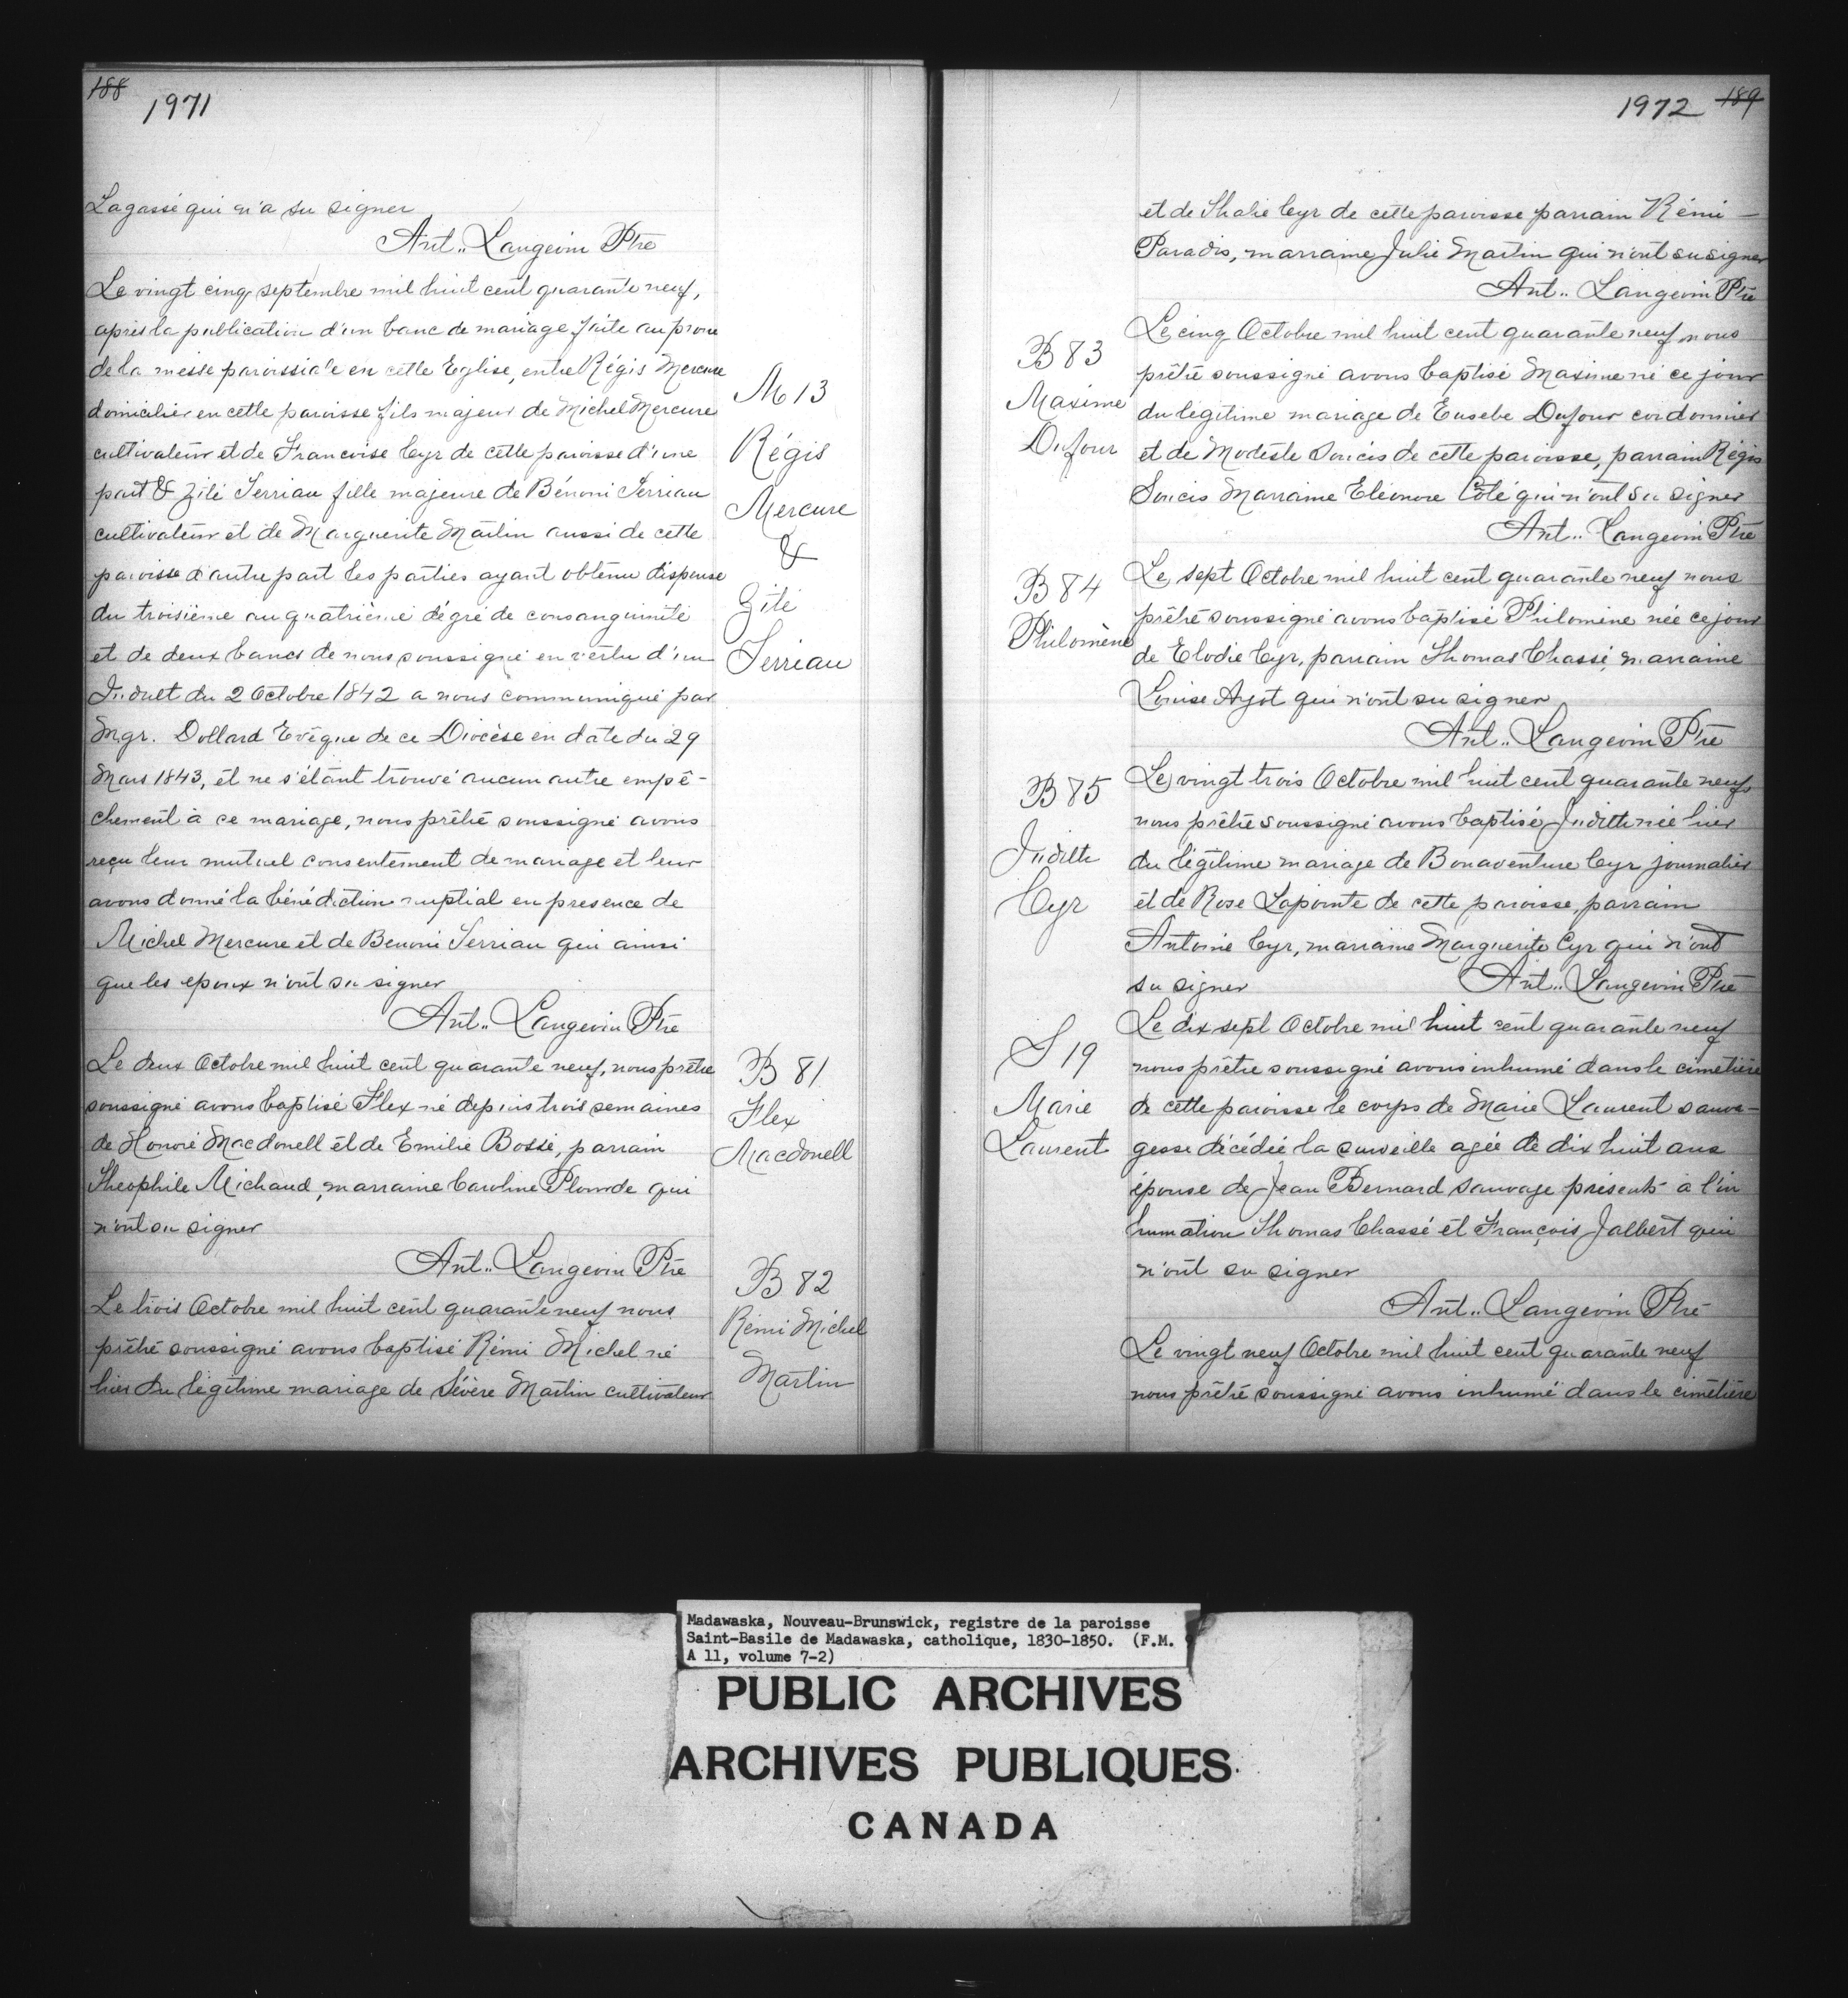 188
1971
Lagassé qui n'a su signer
Ant.. Langevin Ptre
Le vingt cinq septembre mil huit cent quarante neuf,
après la publication d'un banc de mariage faite au prone
de la messe paroissiale en cette Eglise, entre Régis Mercure
domicilier en cette paroisse fils majeur de Michel Mercure
cultivateur et de Francoise Cyr de cette paroisse d'une
part & Zité Terriau fille majeure de Bénoni Terriau
cultivateur et de Marguerite Martin aussi de cette
paroisse d'autre part les parties ayant obtenu dispense
du troisième au quatrième dégré de consanguinité
et de deux bancs de nous soussigné en vertu d'un
Indult du 2 Octobre 1842 a nous communiqué par
Mgr. Dollard Evêque de ce Diocèse en date du 29
Mars 1843, et ne s'étant trouvé aucun autre empê-
chement à ce mariage, nous prêtre soussigné avons
reçu leur mutuel consentement de mariage et leur
avons donné la bénédiction nuptial en presence de
Michel Mercure et de Benoni Terriau qui ainsi
que les epoux n'ont su signer
Ant.. Langevin Ptre
M 13
Régis
Mercure
&
Zité
Terriau
Le deux Octobre mil huit cent quarante neuf, nous prêtre
soussigné avons baptisé Flex né depuis trois semaines
de Honoré Macdonell et de Emilie Bossé, parrain
Theophile Michaud, marraine Caroline Plourde qui
n'ont su signer
Ant.. Langevin Ptre
B 81
Flex
Macdonell
Le trois Octobre mil huit cent quarante neuf nous
prêtre soussigné avons baptisé Rémi Michel né
hier du légitime mariage de Sévère Martin cultivateur
B 82
Rémi Michel
Martin
1972 189
et de Thalie Cyr de cette paroisse parrain Rémi
Paradis, marraine Julie Martin qui n'ont su signer
Ant.. Langevin Ptre
B 83
Maxime
Dufour
Le cinq Octobre mil huit cent quarante neuf nous
prêtre soussigné avons baptisé Maxime né ce jour
du légitime mariage de Eusebe Dufour cordonnier
et de Modeste Soucis de cette paroisse, parrain Régis
Soucis Marraine Eléonore Côté qui n'ont su signer
Ant.. Langevin Ptre
B 84
Philomène
Le sept Octobre mil huit cent quarante neuf nous
prêtre soussigné avons baptisé Philomène née ce jour
de Elodie Cyr, parrain Thomas Chassé, marraine
Louise Ayot qui n'ont su signer
Ant.. Langevin Ptre
B 85
Judith
Cyr
Le vingt trois Octobre mil huit cent quarante neuf
nous prêtre soussigné avons baptisé Judith née hier
du légitime mariage de Bonaventure Cyr journalier
et de Rose Lapointe de cette paroisse, parrain
Antoine Cyr, marraine Marguerite Cyr qui n'ont
su signer Ant.. Langevin Ptre
S 19
Marie
Laurent
Le dix sept Octobre mil huit cent quarante neuf
nous prêtre soussigné avons inhumé dans le cimetière
de cette paroisse le corps de Marie Laurent sauva-
gesse décédée la surveille agée de dix huit ans
épouse de Jean Bernard Sauvage présents à l'in
humation Thomas Chassé et François Jalbert qui
n'ont su signer
Ant.. Langevin Ptre
Le vingt neuf Octobre mil huit cent quarante neuf
nous prêtre soussigné avons inhumé dans le cimetière
Madawaska, Nouveau-Brunswick, registre de la paroisse
Saint-Basile de Madawaska, catholique, 1830-1850. (F.M.
A 11, volume 7-2)
PUBLIC ARCHIVES
ARCHIVES PUBLIQUES
CANADA